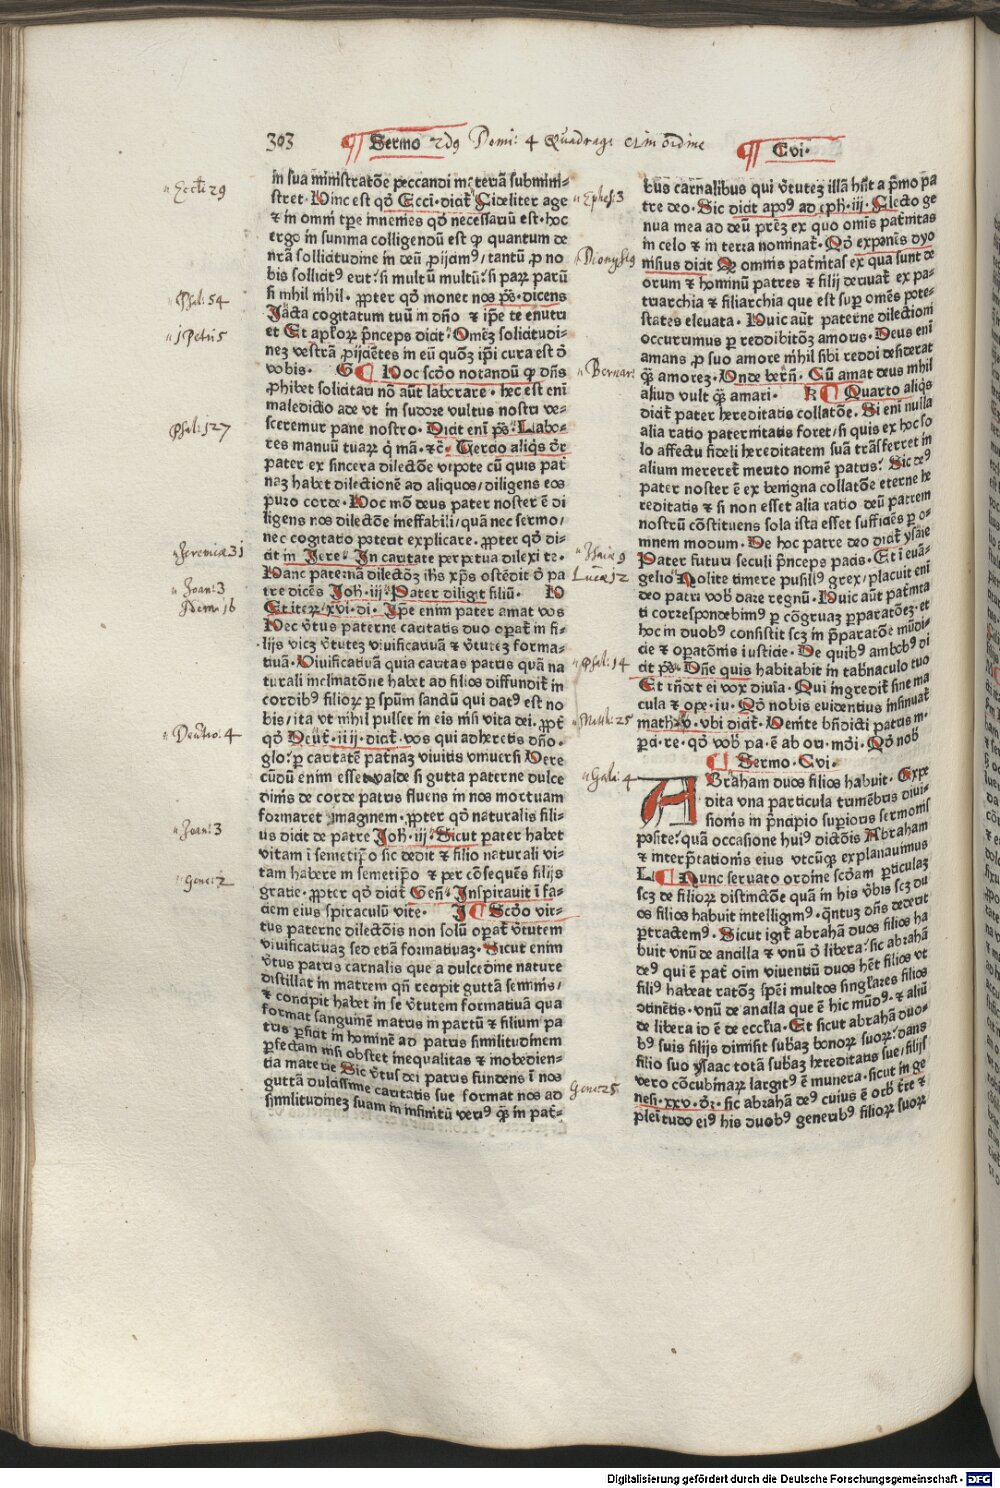 303 Sermo 2dus Domi: 4 Quadrage Cvi·
Eccli 29
in sua ministratōe peccandi materiā submini⸗
stret· Hinc est qđ Ecci· dicit Fideliter age
⁊ in omni tp̄e inuenies qđ necessariū est· hoc
ergo in summa colligendū est ꝙ quantum de
nrā sollicitudine in deū ꝓijcimꝰ/ tantū ꝓ no
bis sollicitꝰ erit· si multū multū· si paꝝ parū
Psal: 54
si nihil nihil· ꝓpter qđ monet nos ps̄· dicens
Iacta cogitatum tuū in dño ⁊ ipē te enutri
j Petri 5
et Et aplōꝝ pn̄ceps dicit· Omēꝫ solicitudi⸗
neꝫ vestrā ꝓijciētes in eū quōꝫ ip̄i cura est đ
vobis· G ¶ Hoc scđo notandū ꝙ dn̄s
ꝓhibet solicitari nō aūt laborare· hec est eni
maledictio ade vt in sudore vultus nostri ve⸗
Psal: 127
sceremur pane nostro· Dicit enī ps̄· Labo⸗
res manuū tuaꝝ q̄ mā· ⁊c̄· Tercio aliq̄s dr̄
pater ex sincera dilectōe vtpote cū quis pat
naꝫ habet dilectionē ad aliquos/ diligens eos
puro corde· Hoc mō deus pater noster ē di
ligens nos dilectōe ineffabili/ quā nec sermo/
nec cogitatio poterit explicare· ꝓpter qđ di⸗
Jeremiæ 31
cit in Iere· In caritate perpetua dilexi te·
Hanc paternā dilectōꝫ ihs xp̄s ostēdit đ pa
Joan: 3
tre dicēs Joh· iij· Pater diligit filiū· H
Idem 16
Et iteꝝ/ xvi· di· Ip̄e enim pater amat vos
Hec v̄tus paterne caritatis duo oꝑat̄ in fi⸗
lijs vicꝫ v̄tuteꝫ viuificatiuā ⁊ v̄tuteꝫ forma⸗
tiuā· Viuificatiuā quia caritas patris quā na
turali inclinatōne habet ad filios diffundit̄ in
cordibꝰ filioꝝ ꝑ spūm sanctū qui datꝰ est no
bis/ ita vt nihil pulset in eis nisi vita dei· ꝓpt̄
Deutro: 4
qđ Deut̄· iiij· dicit̄· vos qui adheretis dño·
glo: ꝑ caritatē patnaꝫ viuitis vniuersi Vere
cūdū enim esset valde si gutta paterne dulce
dinis de corde patris fluens in nos mortuam
formaret imaginem· ꝓpter qđ naturalis fili⸗
Joan: 3
us dicit de patre Joh· iij· Sicut pater habet
vitam ī semetip̄o sic dedit ⁊ filio naturali vi⸗
tam habere in semetip̄o ⁊ per cōsequēs filijs
Gene: 2
gratie· ꝓpter qđ dicit̄ Gen̄· Inspirauit ī fa⸗
ciem eius spiraculū vite· I ¶ Scđo vir⸗
tus paterne dilectōis non solū oꝑat̄ v̄tutem
viuificatiuaꝫ sed etiā formatiuaꝫ· Sicut enim
v̄tus patris carnalis que a dulcedine nature
distillat in matrem qn̄ recipit guttā seminis/
⁊ concipit habet in se v̄tutem formatiuā qua
format sanguinē matris in partū ⁊ filium pa
tris ꝑficit in hominē ad patris similitudinem
ꝑfectam nisi obstet inequalitas ⁊ inobedien⸗
tia materie Sic v̄tus dei patris fundens ī nos
guttā dulcissime caritatis sue format nos ad
similitudineꝫ suam in infinitū verꝰ q̄ꝫ in pat̄⸗
Ephes: 3
bus carnalibus qui v̄tuteꝫ illā hn̄t a p̄mo pa
tre deo· Sic dicit apꝰ ad eph· iij· Flecto ge
nua mea ad deū pr̄eꝫ ex quo omīs pat̄nitas
in celo ⁊ in terra nominat̄· Qđ exponēs dyo
Dionysiꝰ
nisius dicit Q omnis pat̄nitas ex qua sunt de
orum ⁊ hominū patres ⁊ filij deriuat̄ ex pa⸗
triarchia ⁊ filiarchia que est suꝑ omēs pote⸗
states eleuata· Huic aūt paterne dilectioni
occurrimus ꝑ reddibitōꝫ amoris· Deus enī
amans ꝓ suo amore nihil sibi reddi desiderat
Bernar:
q̄ꝫ amoreꝫ· Vnde ber̄n̄· Cū amat deus nihil
aliud vult q̄ꝫ amari· K ¶ Quarto aliq̄s
dicit̄ pater hereditatis collatōe· Si enī nulla
alia ratio paternitatis foret/ si quis ex hoc so
lo affectu fideli hereditatem suā trāsferret in
alium mereret̄ merito nomē patris· Sic deꝰ
pater noster ē ex benigna collatōe eterne he
reditatis ⁊ si non esset alia ratio deū patrem
nostrū cōstituens sola ista esset sufficiēs ꝑ o⸗
mnem modum· De hoc patre deo dicit̄ ysaie
Isaiæ 9
Pater futuri seculi p̄nceps pacis· Et ī euā⸗
Lucæ 12
gelio Nolite timere pusillꝰ grex/ placuit enī
deo patri vob̄ dare regnū· Huic aūt pat̄nita
ti correspondebimꝰ ꝑ cōgruaꝫ p̄paratōeꝫ· et
hoc in duobꝰ consistit scꝫ in p̄paratōe mūdi⸗
cie ⁊ oꝑatōnis iusticie· De quibꝰ ambobꝰ di
Psal: 14
cit ps̄· Dn̄e quis habitabit in tab̄naculo tuo
Et rn̄det ei vox diuia· Qui ingredit̄ sine ma
cula ⁊ ope· iu· Qđ nobis euidentius insinuat̄
Matth: 25
math· xxv· vbi dicit̄· Venite bn̄dicti patris m·
ꝑci· re· qđ vob̄ pa· ē ab ori· mōi· Qđ nob̄
¶ Sermo· Cvi·
Gala: 4
ABraham duos filios habuit· Expe
dita vna particula tr̄imēbris diui⸗
sionis in pn̄cipio suꝑioris sermonis
posite· quā occasione huiꝰ dictōis Abraham
⁊ interp̄tationis eius vtcūqꝫ explanauimus
L ¶ Nunc seruato ordine scđam ꝑticulaꝫ
scꝫ de filioꝝ distinctōe quā in his v̄bis scꝫ du
os filios habuit intelligimꝰ· q̄ntuꝫ dn̄s dederit
ꝑtractemꝰ· Sicut igit̄ abrahā duos filios ha
buit vnū de ancilla ⁊ vnū đ libera· sic abrahā
deꝰ qui ē pat̄ oīm viuentiū duos hēt filios vt
filiꝰ habeat ratōꝫ sp̄ei multos singl̄ares filios
ↄtinētis· vnū de ancilla que ē hic mūdꝰ· ⁊ aliū
de libera id ē de eccl̄ia· Et sicut abrahā duo⸗
bꝰ suis filijs dimisit sub̄aꝫ bonoꝝ suoꝝ· dans
filio suo ysaac totā sub̄aꝫ hereditatis sue/ filijs
vero cōcubinaꝝ largitꝰ ē munera· sicut in ge
Gene: 25
nesi· xxv· dr̄· sic abrahā deꝰ cuius ē orb̄ tr̄re ⁊
plenitudo eiꝰ his duobꝰ generibꝰ filioꝝ suoꝝ
Digitalisierung gefördert durch die Deutsche Forschungsgemeinschaft - DFG